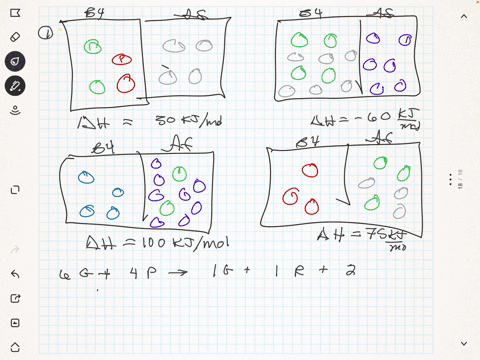 1 B4 Af B4 Af
ΔH = 50 KJ/mol ΔH = -60 KJ/mo
B4 Af B4 Af
ΔH = 100 KJ/mol ΔH = 75 KJ/mo
6 G + 4 P → 1 G + 1 R + 2